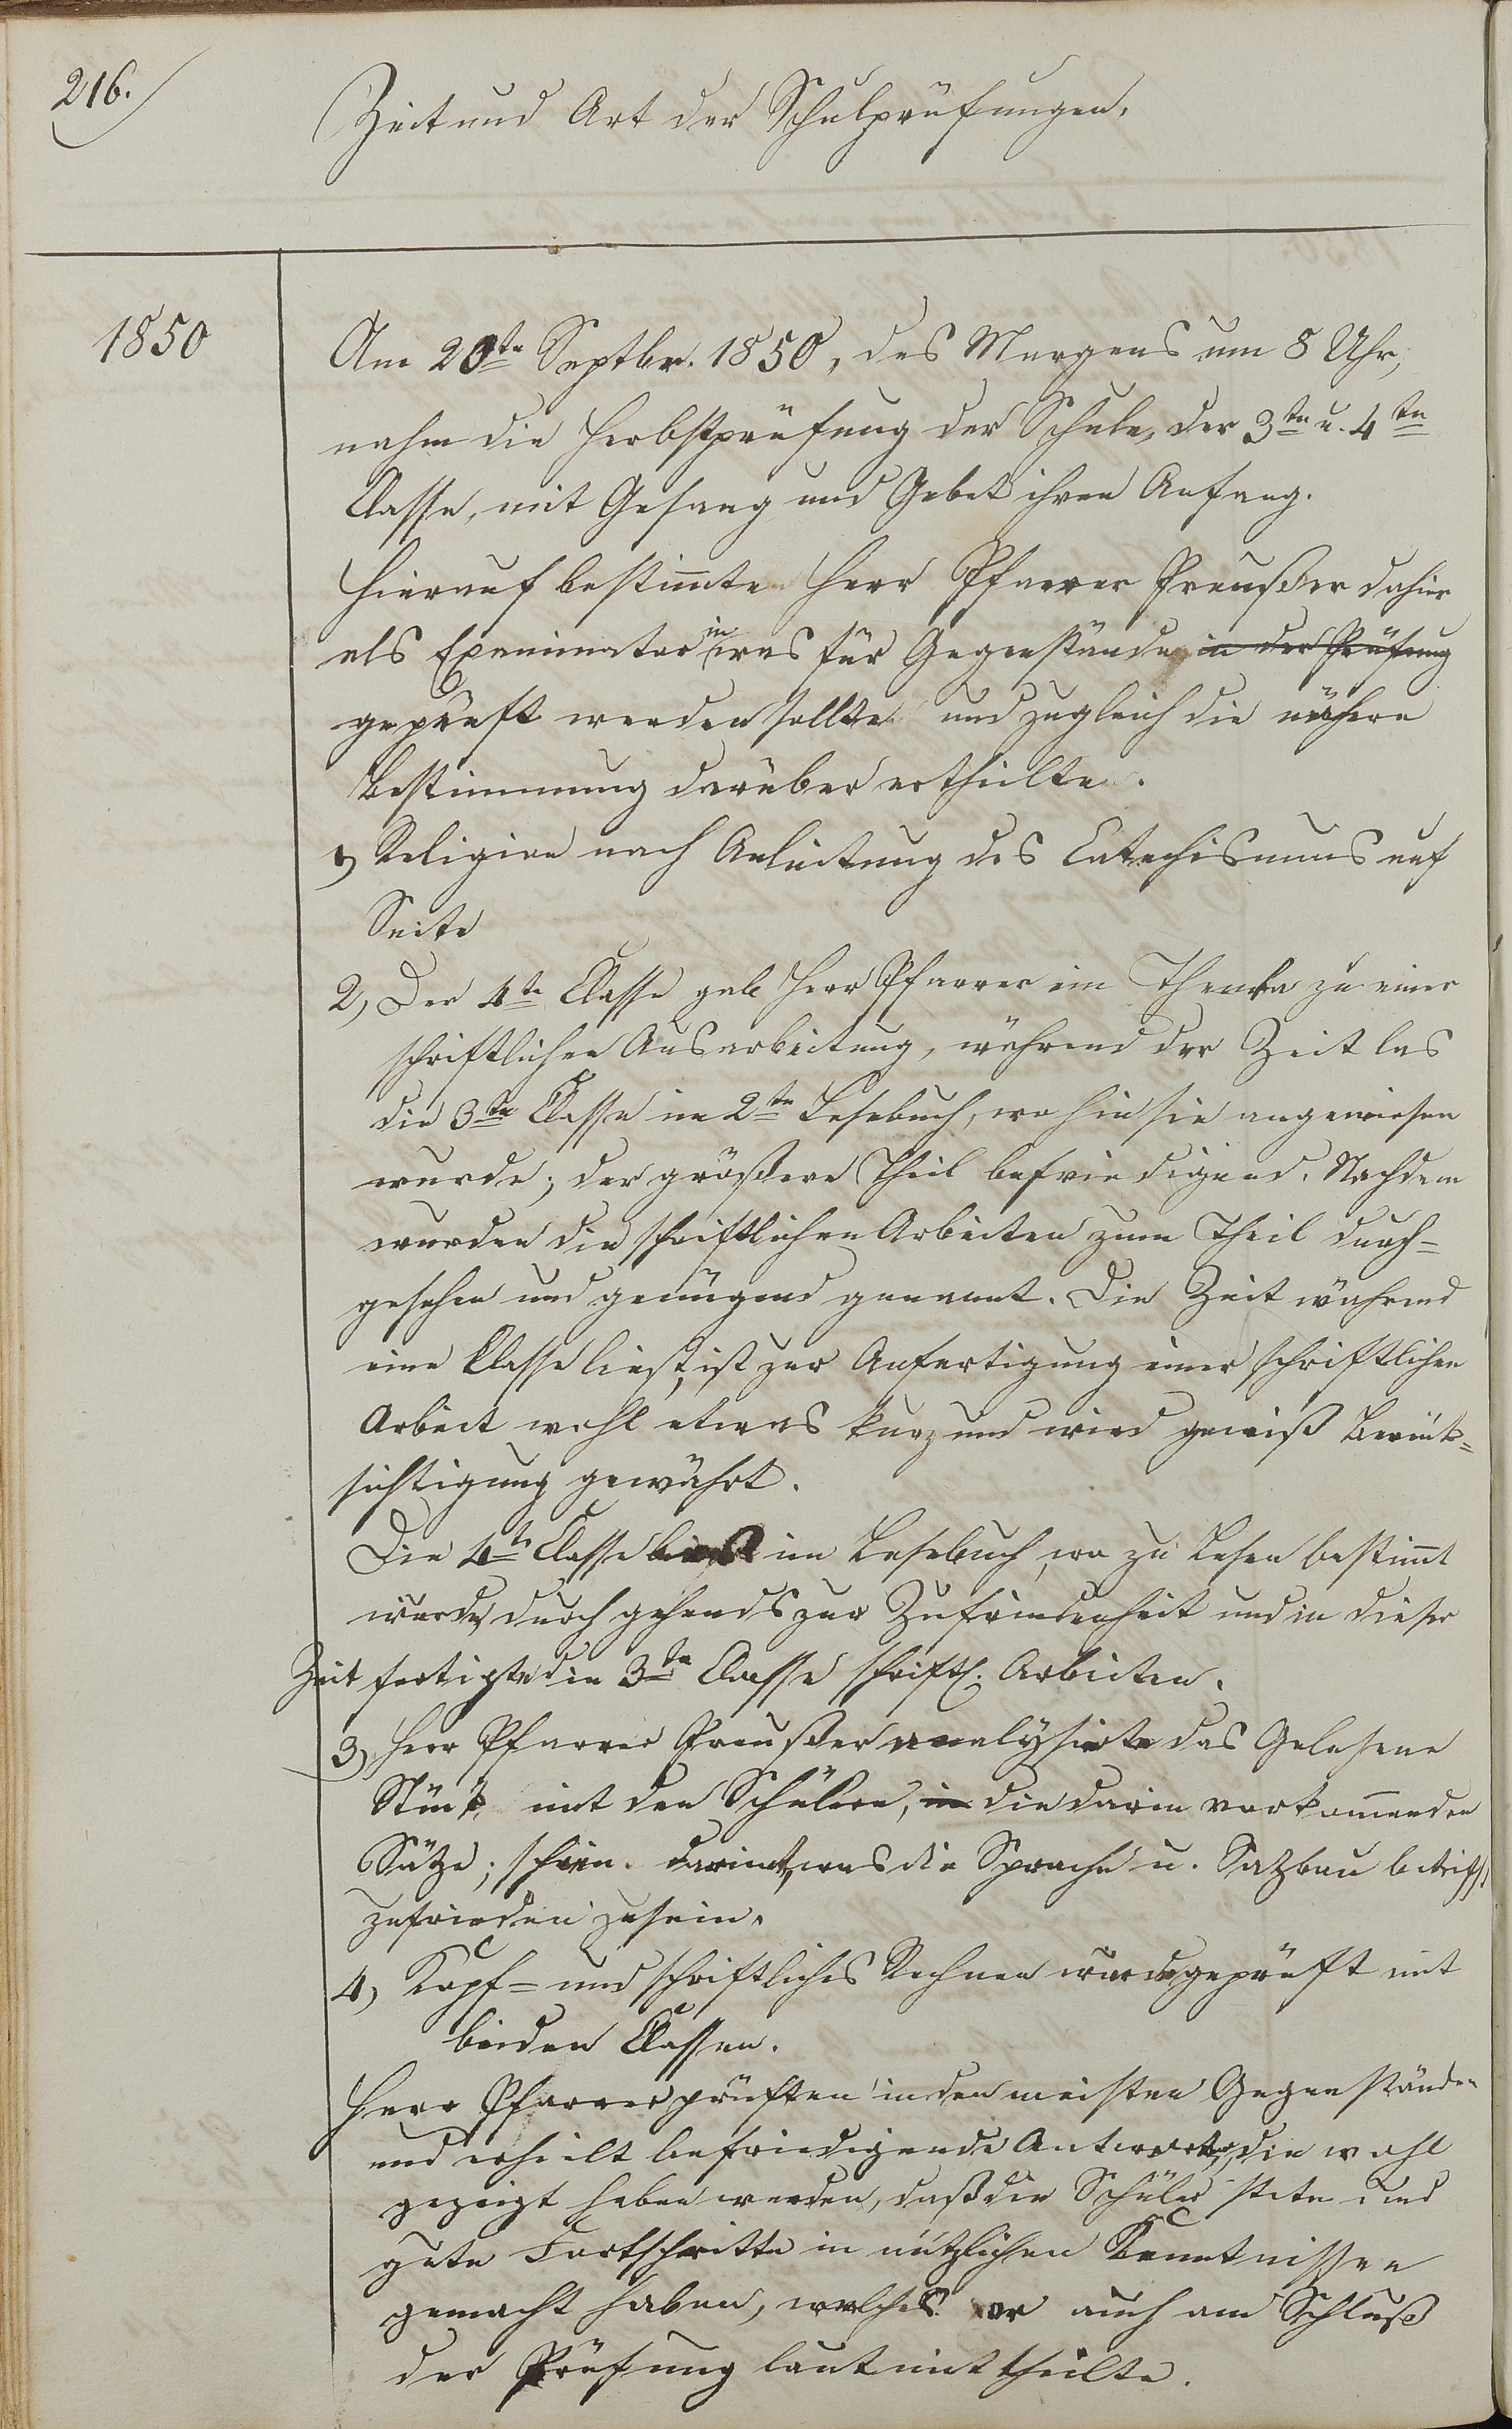 216.
Zeit und Art der Schulprüfungen.
1850
Am 20te Septbr. 1850, des Morgens um 8 Uhr,
nahm die Herbstprüfung der Schule, der 3ten u. 4ten
Classe, mit Gesang und Gebet ihren Anfang.
Hierauf bestim̅te Herr Pfarrer Preußer dahier
als Examinator in was für Gegenstände in der Prüfung
geprüft werden sollte und zugleich die nähere
Bestimmung darüber ertheilte.
1, Religion nach Anleitung des Catechismus auf
Seite
2, Der 4te Classe gab Herr Pfarrer ein Thema zu einer
schriftlichen Ausarbeitung, während der Zeit las
die 3te Classe im 2te Lesebuch, wo hin sie angewiesen
wurde; der größere Theil befriedigend. Nachdem
wurden die schriftlichen Arbeiten zum Theil durch=
gesehen und genügend genannt. Die Zeit während
eine Classe liest, ist zur Anfertigung einer schriftlichen
Arbeit wohl etwas kurz und wird gewiß Berück=
sichtigung gewährt.
Die 4te Classe ließt im Lesebuch, wo zu Lesen bestim̅t
wurde, durchgehends zur Zufriedenheit und in dieser
Zeit fertigte die 3te Classe schriftl. Arbeiten.
3, Herr Pfarrer Preußer analysirte das Gelesene
Stück mit den Schülern, in die darin vorkom̅enden
Sätze; schien damit, was die Sprache u. Satzbau betrifft
zufrieden zu sein.
4, Kopf= und schriftliches Rechnen wurde geprüft mit
beiden Classen.
Herr Pfarrer prüften in den meisten Gegenständen
und erhielt befriedigende Antworten, die wohl
gezeigt haben werden, daß die Schüler stete und
gute Fortschritte in nützlichen Kenntnissen
gemacht haben, welches er auch am Schluß
der Prüfung laut mittheilte.